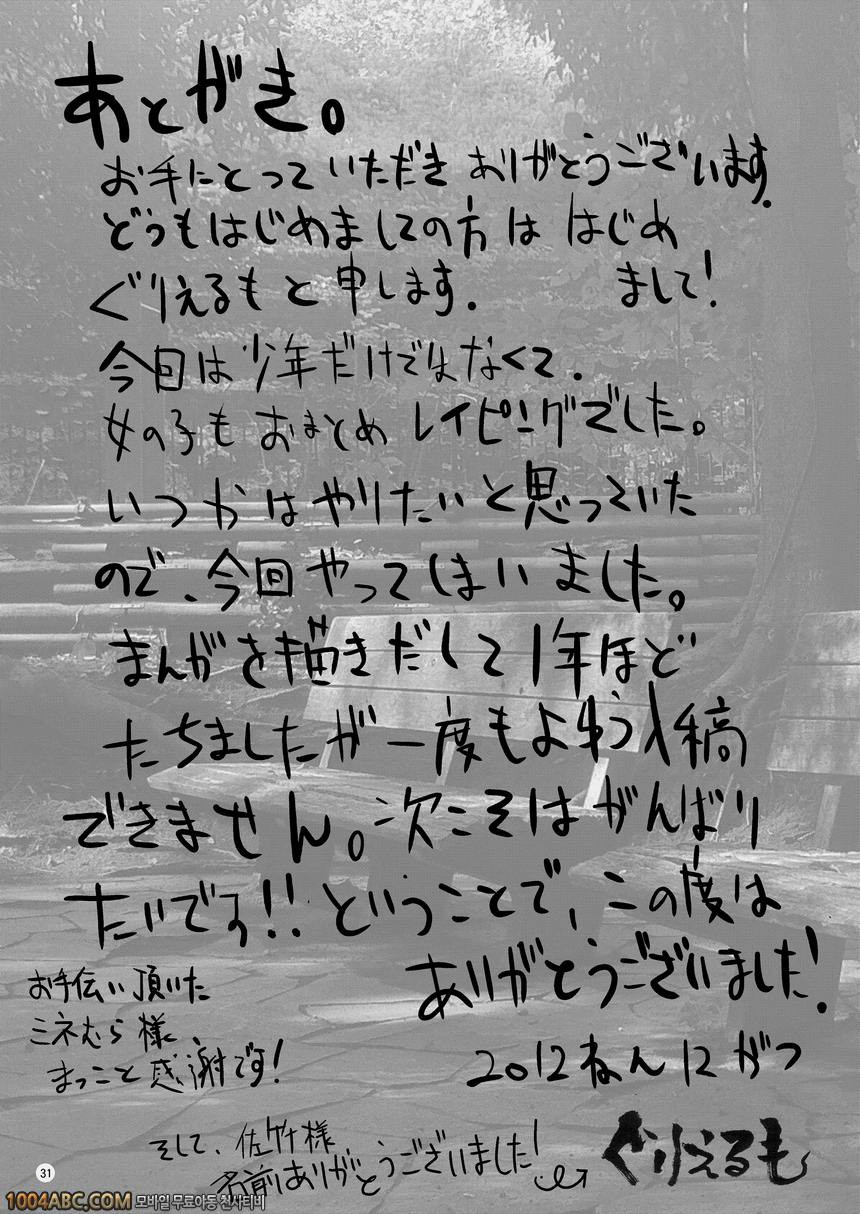 あとがき。
お手にとっていただき ありがとうございます.
どうもはじめましての方は はじめ
まして!
ぐりえるもと申します.
今回は少年だけではなくて.
女の子もおまとめ レイピングでした。
いつかはやりたいと思っていた
ので、今回やってしまいました。
まんがを描きだして1年ほど
たちましたが一度もよゆう入稿
できません。次こそはがんばり
たいです!! ということで、この度は
ありがとうございました!
お手伝い頂いた
ミネむら様、
まっこと感謝です!
2012ねん12がつ
そして、佐竹様
名前ありがとうございました!
ぐりえるも
31
1004ABC.COM 모바일 무료야동 천사티비